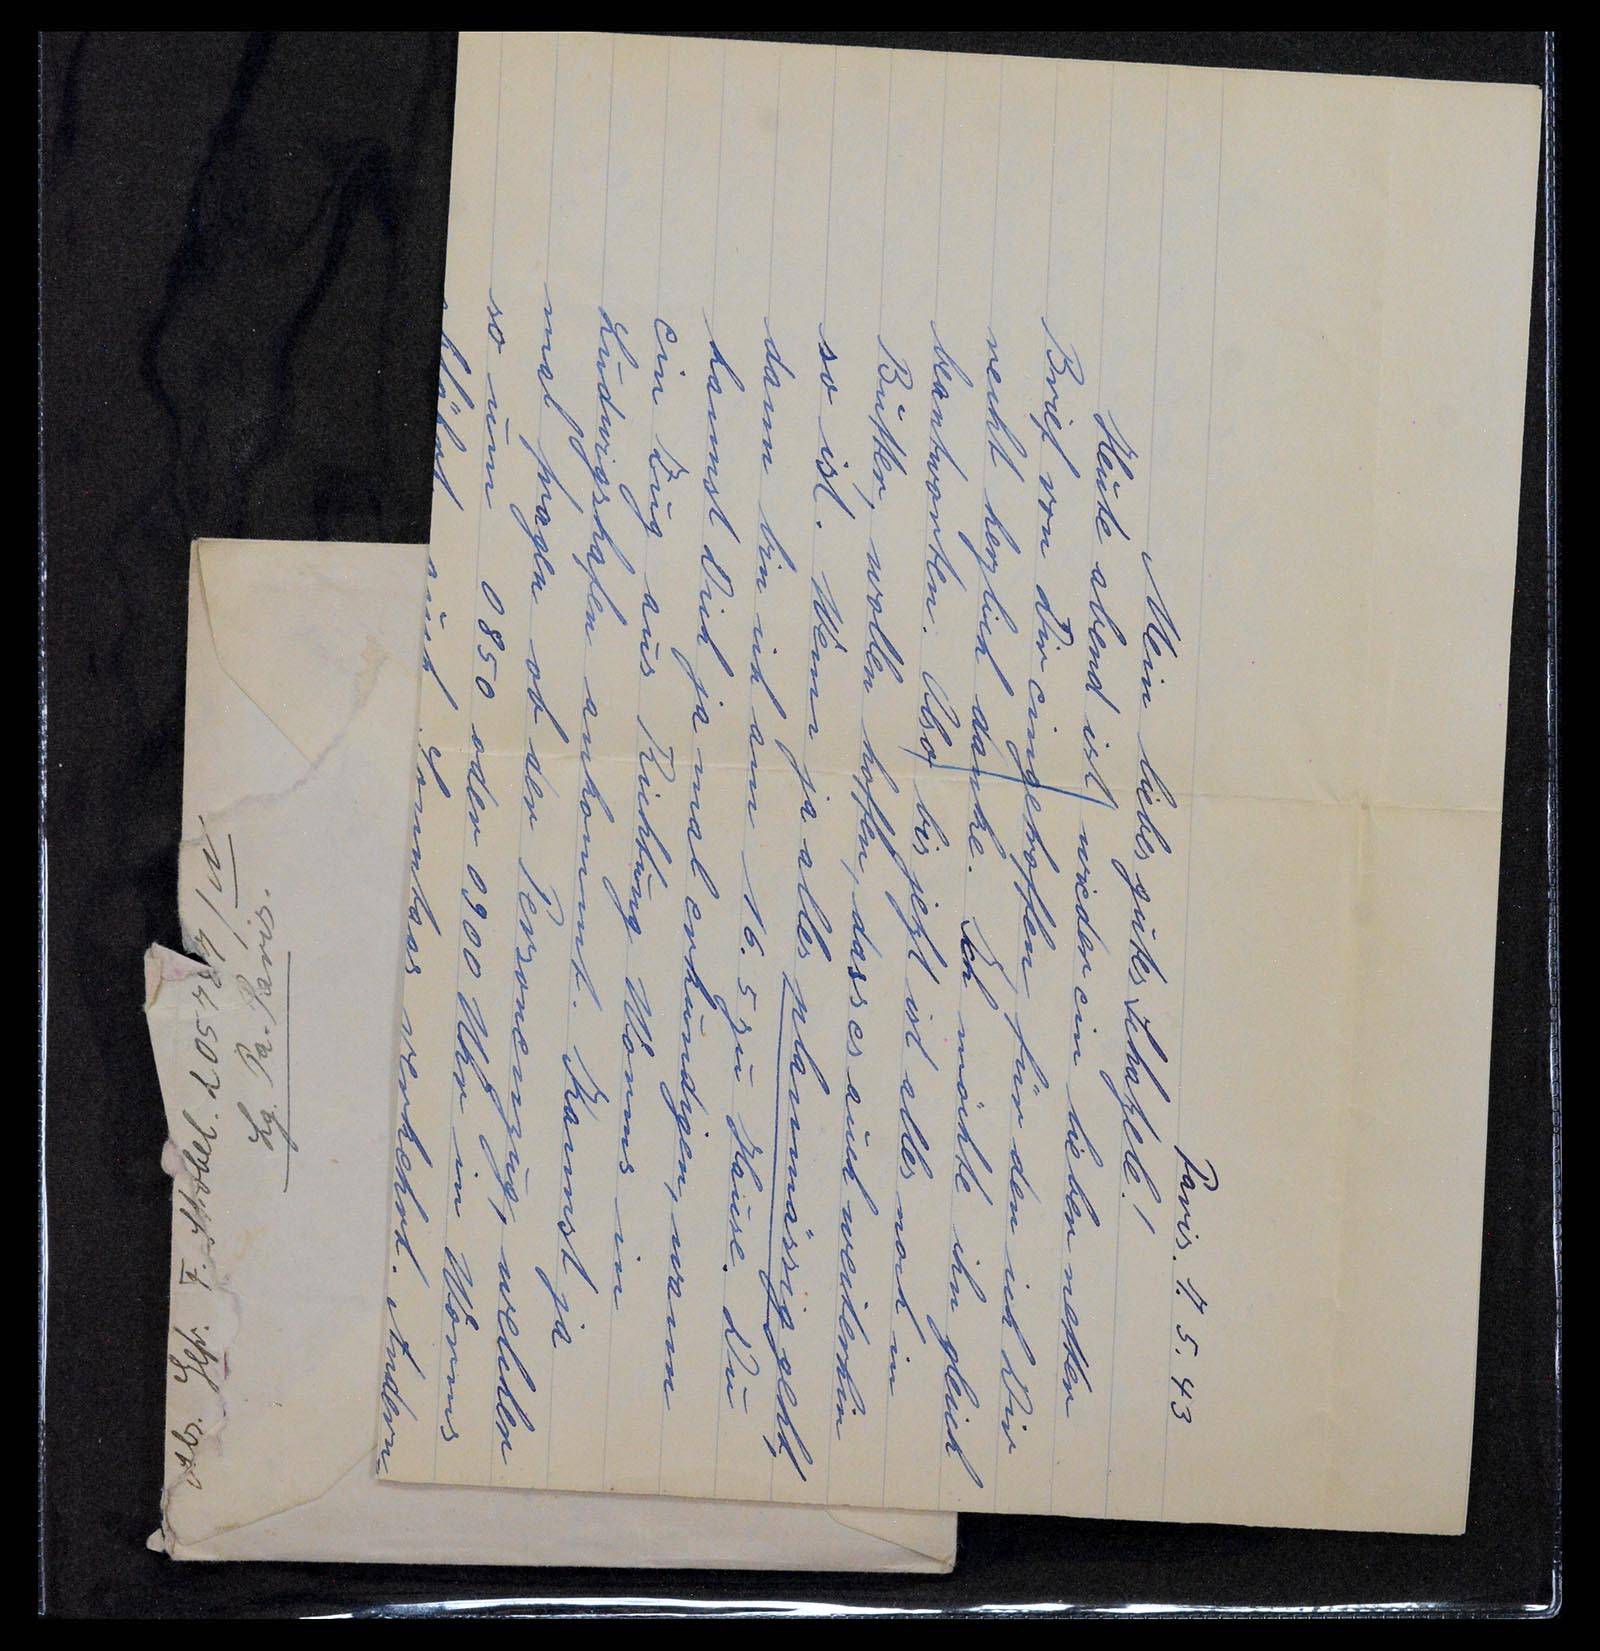 Paris. 7. 5. 43
Mein liebes gutes Schatzele!
Heute abend ist wieder ein lieber netter
Brief von Dir eingetroffen, für den ich Dir
recht herzlich danke. Ich möchte ihn gleich
beantworten. Also, bis jetzt ist alles noch in
Butter, wollen hoffen, dass es auch weiterhin
so ist. Wenn ja alles planmässig geht,
dann bin ich am 16. 5 zu Hause. Du
kannst Dich ja mal erkundigen, wann
ein Zug aus Richtung Worms in
Ludwigshafen ankommt. Kannst ja
mal fragen ob der Personenzug, welcher
so um 0850 oder 0900 Uhr in Worms
auch Sonntags verkehrt. Andern-
Abs. F. Strobel.
Lg. Pa. Paris.